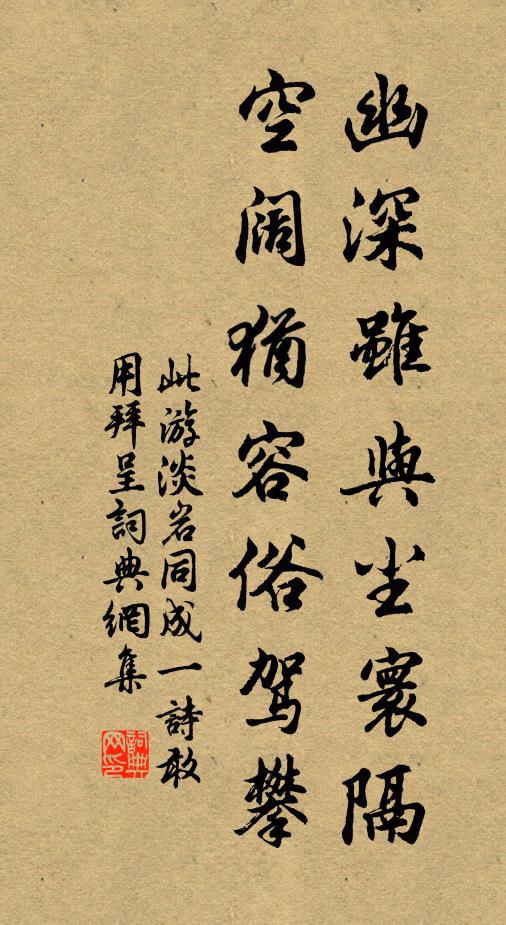 幽深雖與尘寰隔
空阔猶容俗驾攀
此游淡岩同成一詩敢
用拜呈詞典網集
詞典网印